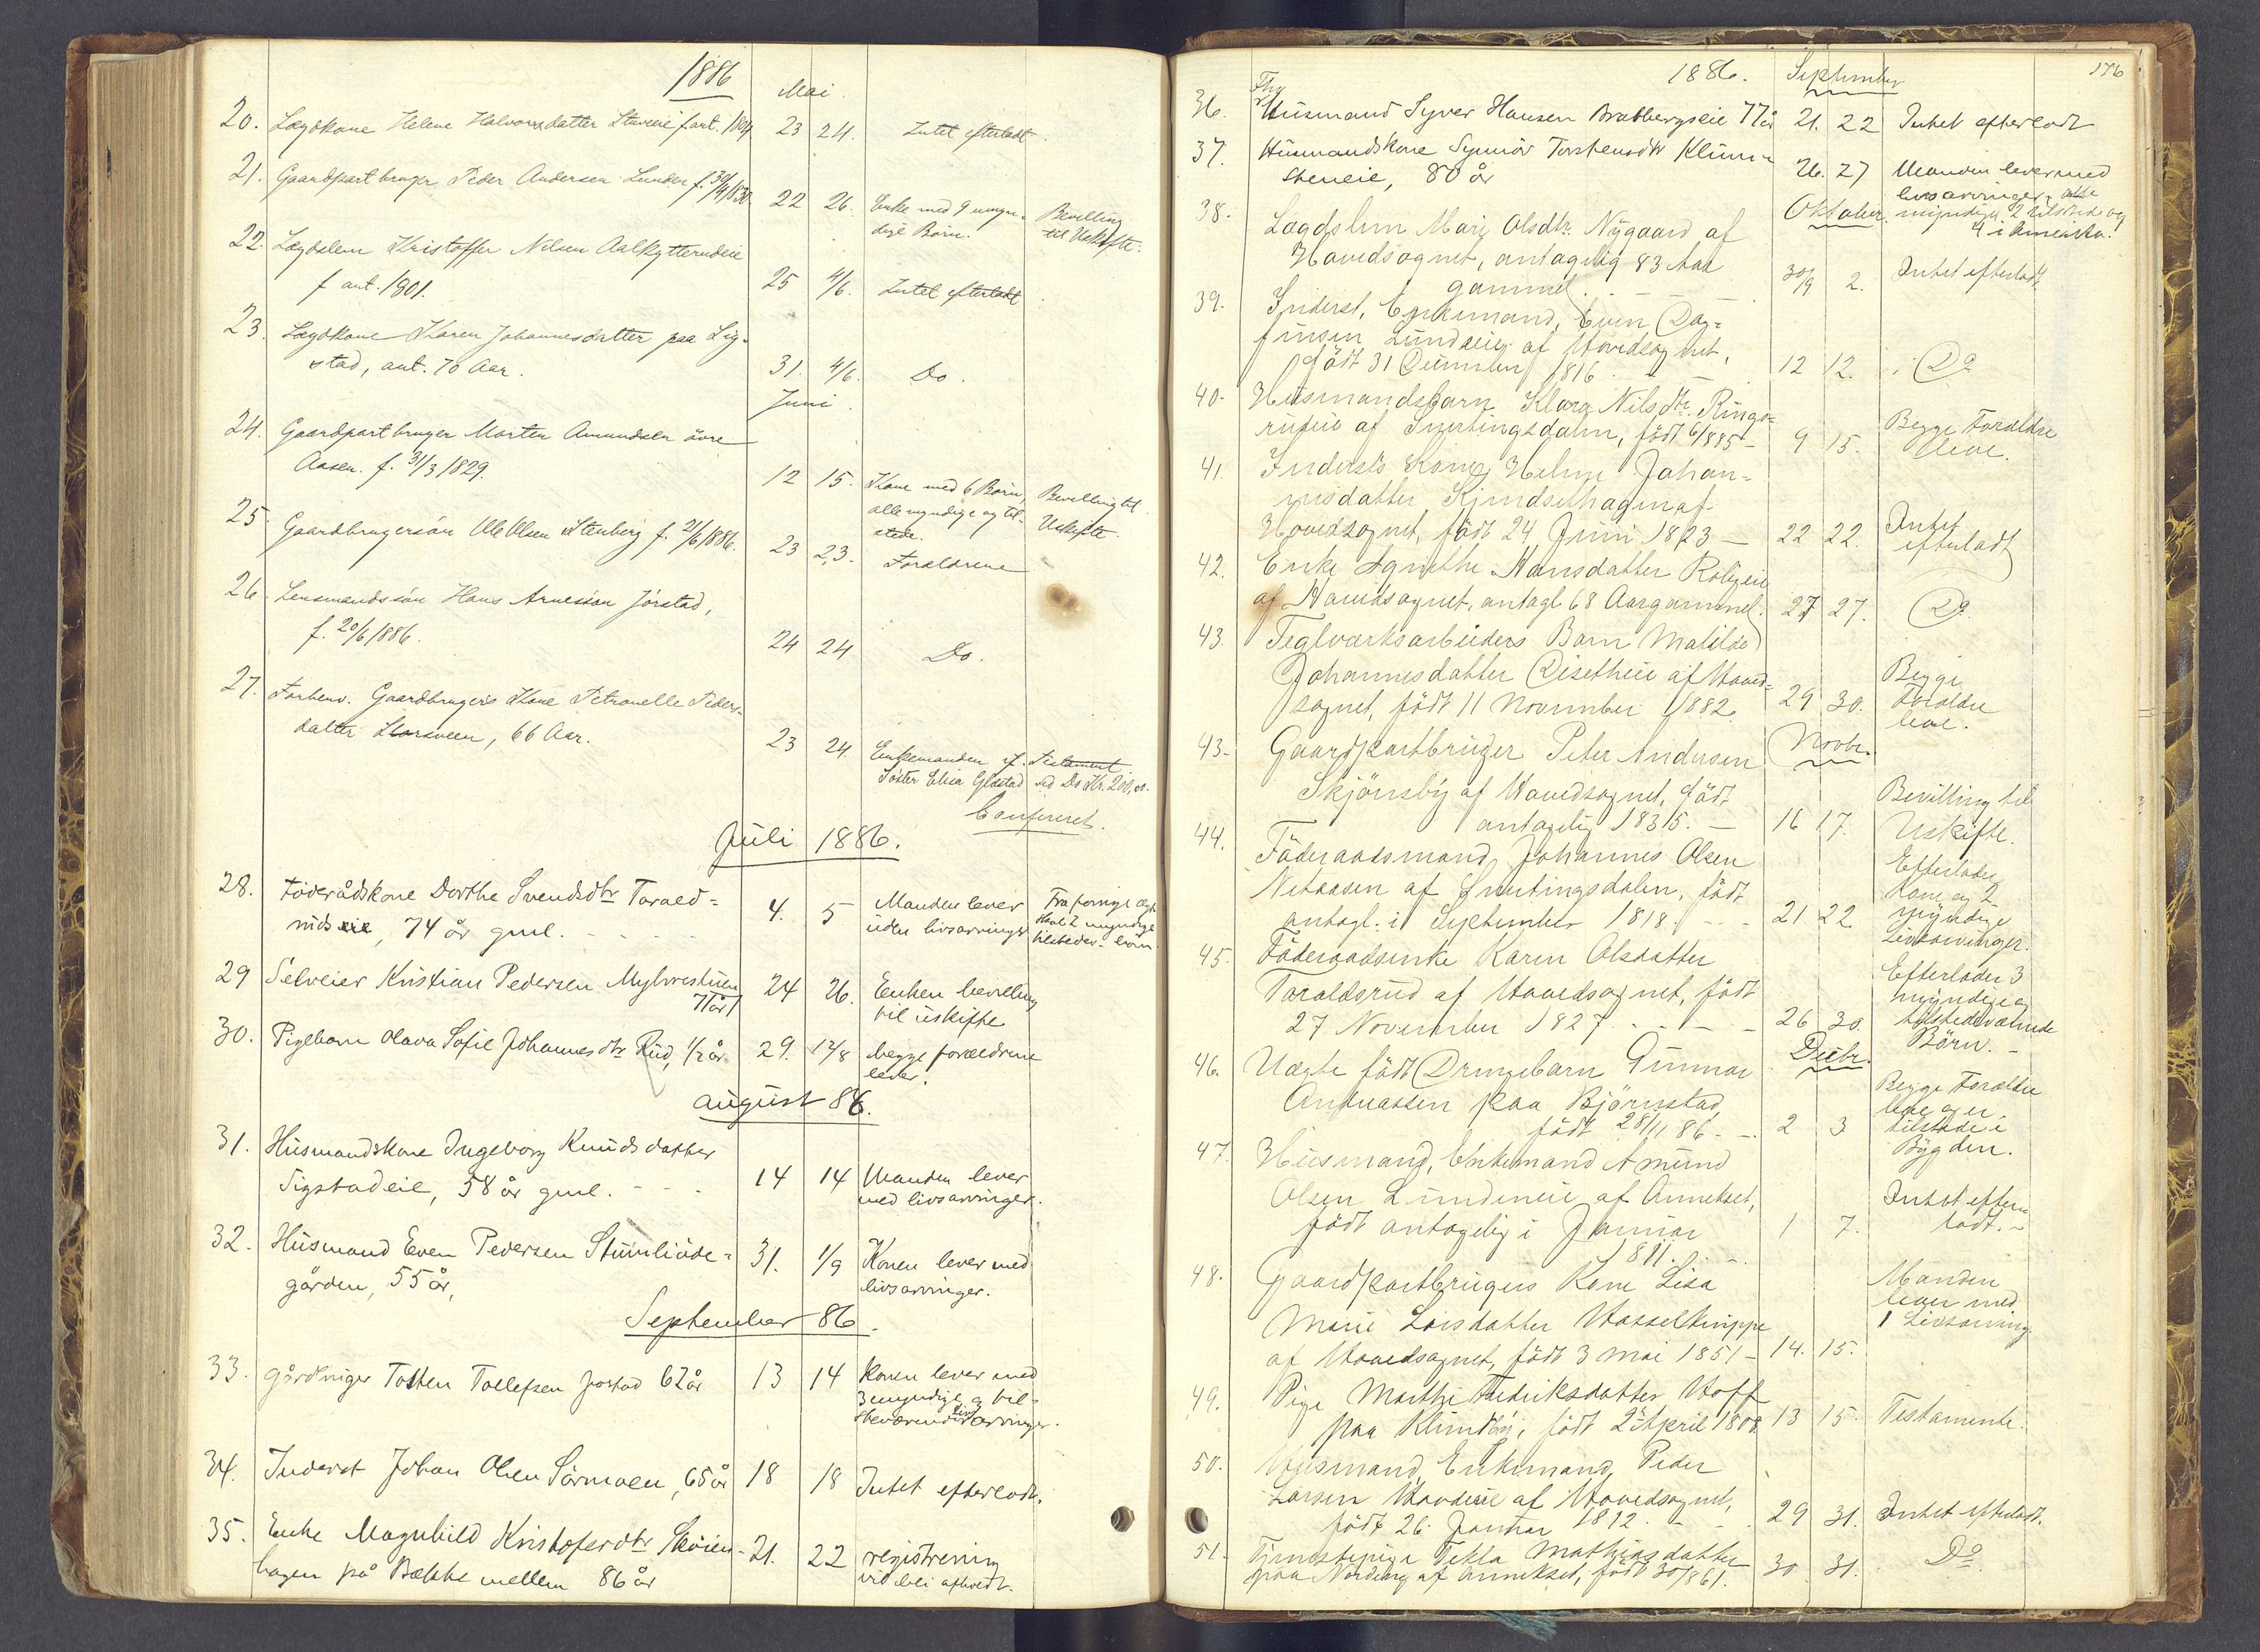 1886
Mai
20. Lægdkone Helene Halvorsdatter 23 24. Intet efterladt.
21. Gaardpartbruger Peder Andersen Lunden f. 30/4/1830. 22 26. Enke med 9 umyn-
dige Børn.
Bevilling
til Uskifte.
22. Lægdslem Kristoffer Nilsen
f. ant. 1801. 25 4/6. Intet efterladt
23. Lægdkone Karen Johannesdatter paa Sig-
stad, ant. 70 Aar. 31. 4/6. Do.
Juni
24. Gaardpartbruger Morten Amundsen övre
Aasen. f. 31/3 1829. 12 15. Kone med 6 Børn,
alle myndige og til-
stede.
Bevilling til
Uskifte.
25. Gaardbrugersön Ole Olsen Stenberg f. 21/6/1886. 23 23. Forældrene
26. Lensmandssön Hans Arnesson Jörstad,
f. 20/6/1886. 24 24 Do.
27. Forhenv. Gaardbrugers Kone Petronelle Peders-
datter Storsveen, 66 Aar. 23 24. Enkemanden
Testament
Søster Elisa Glæstad
Confereret.
Juli 1886.
28. Föderådskone Dorthe Svendsdtr Tarald-
rudseie, 74 år gml. 4. 5 Manden lever
uden livsarvinger
29 Selveier Kristian Pedersen
71 år 24 26. Enken bevilling
til uskifte
30. Pigebarn Olava Sofie Johannesdtr Rud, 1/2 år. 29. 12/8 begge forældrene
lever.
August 86.
31. Husmandskone Ingeborg Knudsdatter
Sigstadeie, 58 år gml. 14 14 Manden lever
med livsarvinger.
32. Husmand Even Pedersen
gården, 55 år, 31. 1/9 Konen lever med
livsarvinger.
September 86.
33. gårdbruger Tosten Tollefsen Jostad 62 år 13 14 Konen lever med
3 myndige og til-
stedværende livsarvinger.
34. Inderst Johan Olsen Sörmoen, 65 år 18 18 Intet efterladt.
35. Enke Magnhild Kristofersdtr Skoien-
hagen på Bække mellem 86 år 21. 22 registrering
afholdt.
1886. September
176
36. Husmand Syver Hansen Bratbergseie 77 år 21. 22 Intet efterladt
37. Husmandskone Synnöv Torstensdtr Klum-
steneie, 80 år 26. 27 Manden lever med
livsarvinger, alle
myndige, 2 tilstede og
4 i Amerika.
Oktober.
38. Lægdslem Mari Olsdtr. Nygaard af
Hovedsognet, antagelig 83 Aar
gammel. 30/9 2. Intet efterladt
39. Inderst, Enkemand, Even Dag-
finsen Lundeie af Hovedsognet,
født 31 December 1816. 12 12. Do
40. Husmandsbarn Klara Nilsdtr. Rings-
rudeie af Snertingsdalen, født 6/885 - 9 15. Begge Forældre
leve.
41. Inderst's Kone Helene Johan-
nesdatter Kjendsethagen af
Hovedsognet, født 24 Juni 1823 - 22 22. Intet
efterladt
42. Enke Agnethe Hansdatter
af Hovedsognet, antagl 68 Aar gammel. 27 27. Do.
43. Teglværksarbeiders Barn Matilde
Johannesdatter Disetheie af Hoved-
sognet, født 11 November 1882. 29 30. Begge
Forældre
leve.
Novbr.
43. Gaardpartbruger Peter Andersen
Skjönsby af Hovedsognet, født
antagelig 1835. - 16 17. Bevilling til
Uskifte.
44. Föderaadsmand Johannes Olsen
af Snertingsdalen, født
antagl. i September 1818. 21 22 Efterlader
Kone og 2
myndige
Livsarvinger.
45. Föderaadsenke Karen Olsdatter
Taraldsrud af Hovedsognet, født
27 November 1827. 26 30. Efterlader 3
myndige og
tilstedeværende
Börn. -
Decbr.
46. Uægte født Drengebarn Gunnar
Andreassen paa Björnstad,
født 28/11 86. - 2 3 Begge Forældre
leve og er
tilstede i
Bygden.
47. Husmand, Enkemand Amund
Olsen Lundeneie af Annekset,
født antagelig i Januar
1811. 1 7. Intet efter-
ladt. -
48. Gaardpartbrugers Kone Lisa
Marie Larsdatter Hasselknippe
af Hovedsognet, født 3 Mai 1851 - 14. 15. Manden
lever med
1 Livsarving.
49. Pige Marthe Fredriksdatter Hoff
paa Klundby, født 2 April 1808 13 15. Testamente.
50. Husmand, Enkemand, Peder
Larsen af Hovedsognet,
født 26. Januar 1812. - 29 31. Intet efterladt.
51. Tjenestepige Tekla Mathiasdatter
paa Nordeng af Annekset, født 30/861. 30 31. Do